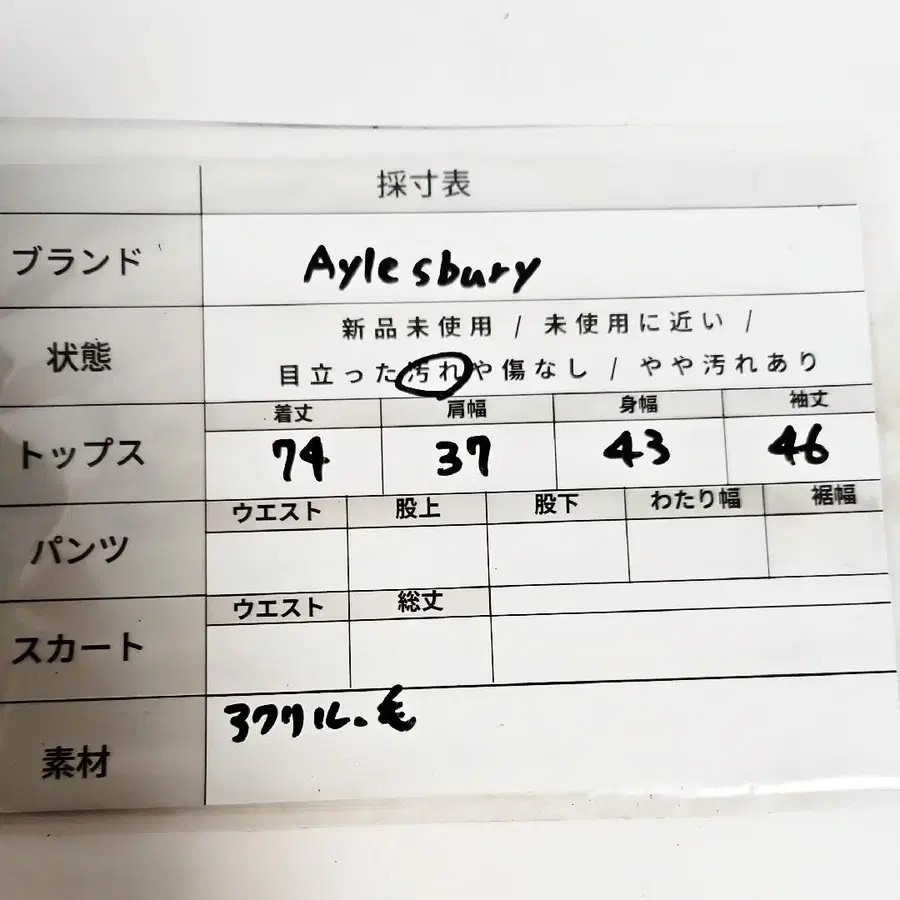 採寸表
ブランド Aylesbury
状態 新品未使用 / 未使用に近い /
目立った汚れや傷なし / やや汚れあり
着丈 肩幅 身幅 袖丈
トップス 74 37 43 46
ウエスト 股上 股下 わたり幅 裾幅
パンツ
ウエスト 総丈
スカート
毛
素材